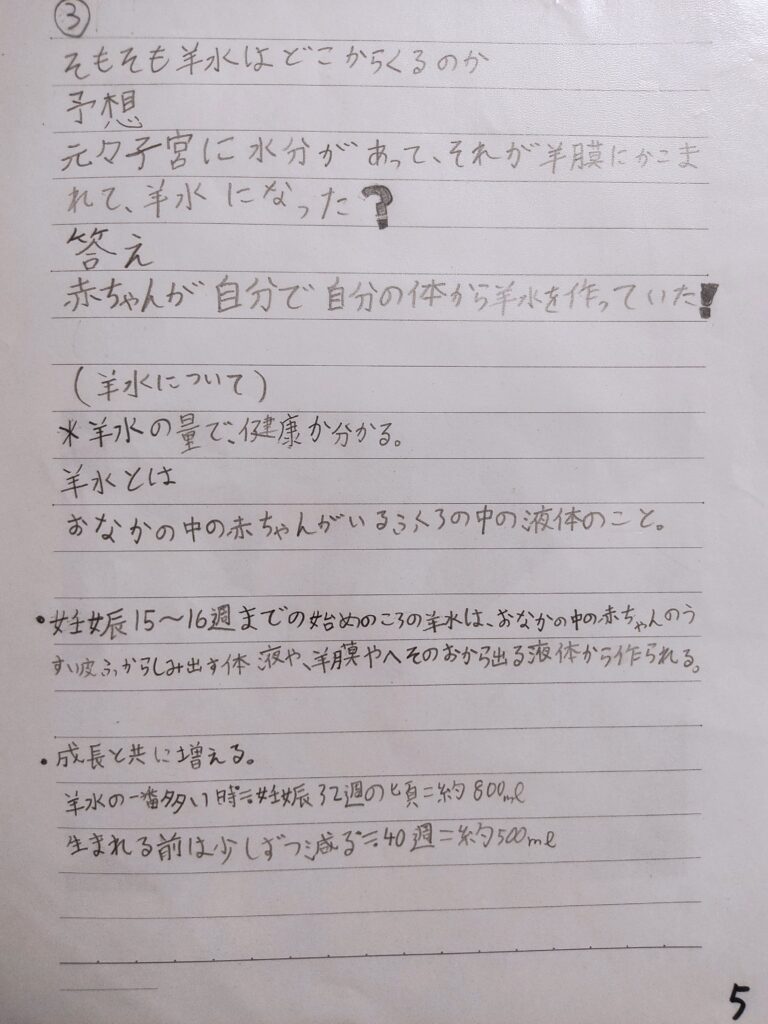 ③
そもそも羊水はどこからくるのか
予想
元々子宮に水分があって、それが羊膜にかこま
れて、羊水になった?
答え
赤ちゃんが自分で自分の体から羊水を作っていた!
(羊水について)
*羊水の量で、健康か分かる。
羊水とは
おなかの中の赤ちゃんがいるふくろの中の液体のこと。
・妊娠15〜16週までの始めのころの羊水は、おなかの中の赤ちゃんのう
すい皮ふからしみ出す体液や、羊膜やへそのおから出る液体から作られる。
・成長と共に増える。
羊水の一番多い時≒妊娠32週の頃=約800ml
生まれる前は少しずつ減る≒40週=約500ml
5